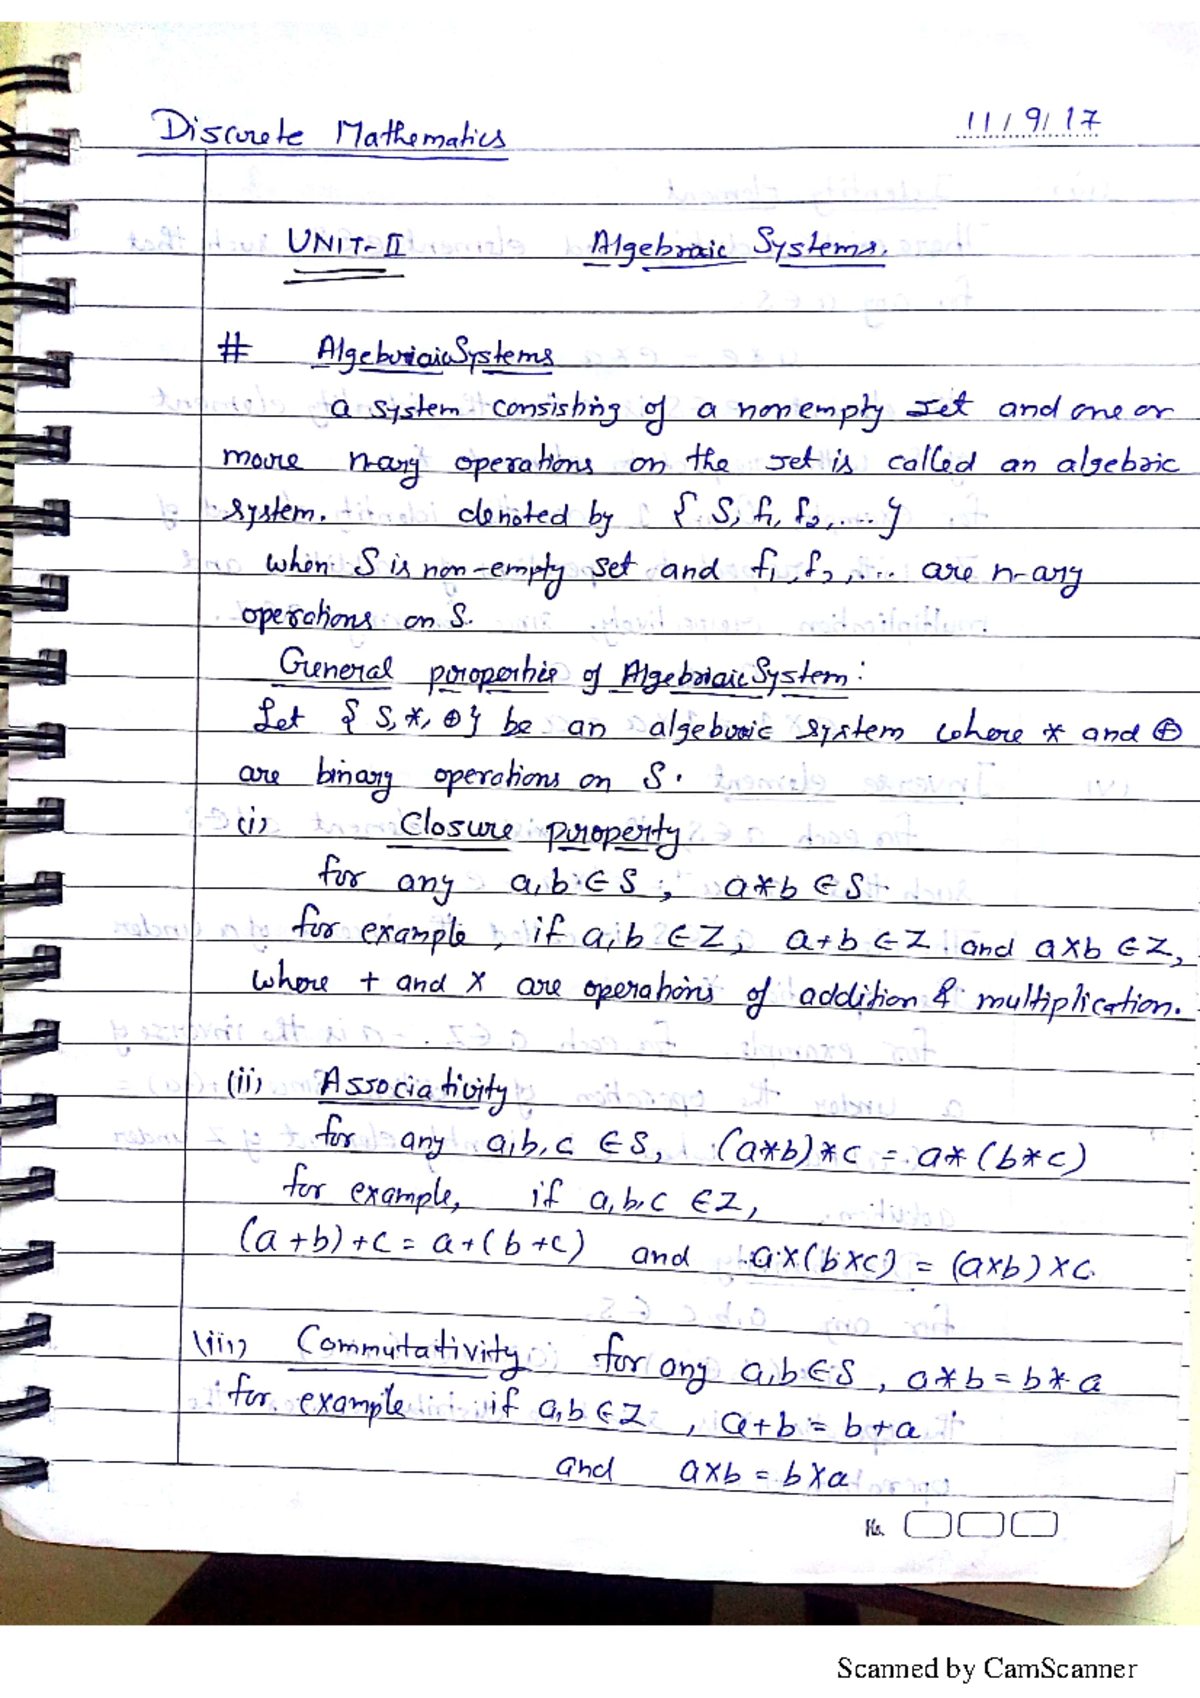 Discrete Mathematics
11/9/17
UNIT-II Algebraic Systems.
# Algebraic Systems
a system consisting of a nonempty set and one or
more n-ary operations on the set is called an algebric
system. denoted by { S, f1, f2, .... }
when S is non-empty set and f1, f2, .... are n-ary
operations on S.
General properties of Algebraic System :
Let { S, *, ⊕} be an algebraic system where * and ⊕
are binary operations on S.
(i) Closure property
for any a, b ∈ S , a*b ∈ S.
for example , if a, b ∈ Z, a+b ∈ Z and a×b ∈ Z,
where + and × are operations of addition & multiplication.
(ii) Associativity
for any a,b,c ∈ S, (a*b)*c = a*(b*c)
for example, if a,b,c ∈ Z,
(a+b)+c = a+(b+c) and a×(b×c) = (a×b)×c.
(iii) Commutativity for any a,b ∈ S , a*b = b*a
for example if a,b ∈ Z , a+b = b+a
and a×b = b×a
No.
Scanned by CamScanner